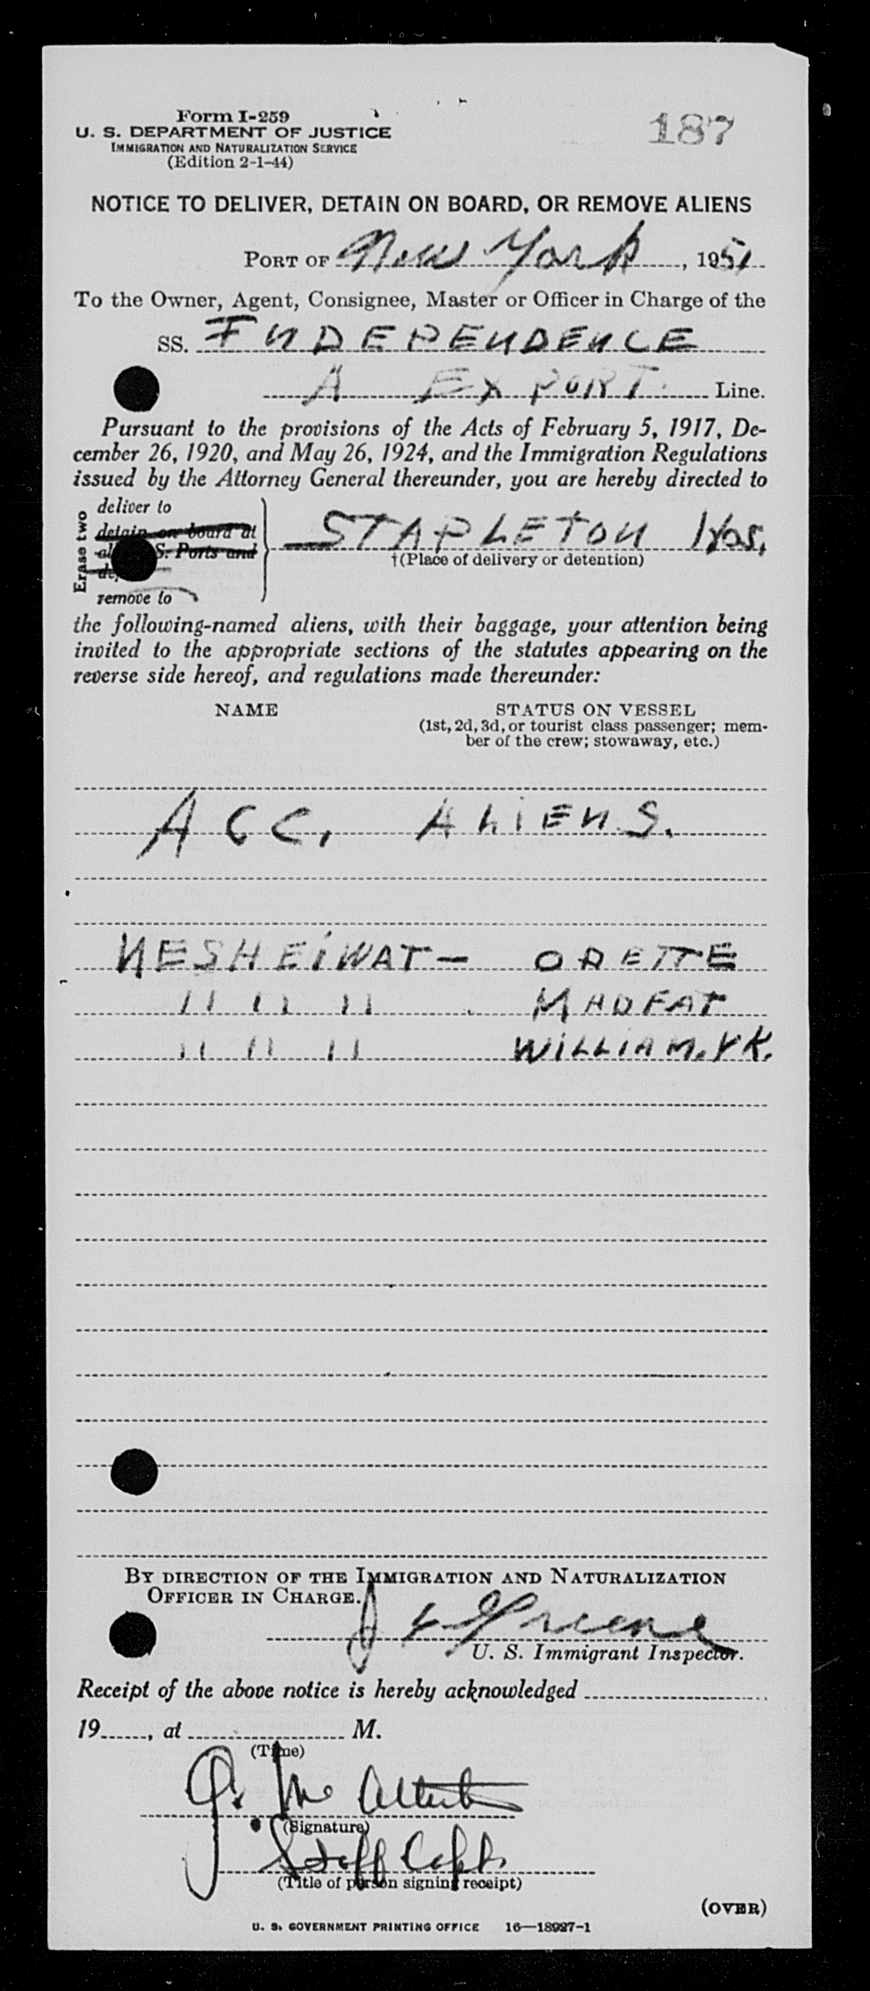 Form I-259
187
U. S. DEPARTMENT OF JUSTICE
IMMIGRATION AND NATURALIZATION SERVICE
(Edition 2-1-44)
NOTICE TO DELIVER, DETAIN ON BOARD, OR REMOVE ALIENS
PORT OF New York, 1951
To the Owner, Agent, Consignee, Master or Officer in Charge of the
SS. INDEPENDENCE
A EXPORT. Line.
Pursuant to the provisions of the Acts of February 5, 1917, De-
cember 26, 1920, and May 26, 1924, and the Immigration Regulations
issued by the Attorney General thereunder, you are hereby directed to
Erase two
deliver to
detain on board at
S. Ports and
remove to
STAPLETON Hos.
†(Place of delivery or detention)
the following-named aliens, with their baggage, your attention being
invited to the appropriate sections of the statutes appearing on the
reverse side hereof, and regulations made thereunder:
NAME STATUS ON VESSEL
(1st, 2d, 3d, or tourist class passenger; mem-
ber of the crew; stowaway, etc.)
ACC, ALIENS.
NESHEIWAT - ODETTE
11 11 11 MADFAT
11 11 11 WILLIAM. Y K.
BY DIRECTION OF THE IMMIGRATION AND NATURALIZATION
OFFICER IN CHARGE.
Greene
U. S. Immigrant Inspector.
Receipt of the above notice is hereby acknowledged
19, at M.
(Time)
J. Mc
(Signature)
Staff Capt.
(Title of person signing receipt)
(OVER)
U. S. GOVERNMENT PRINTING OFFICE 16—18927-1